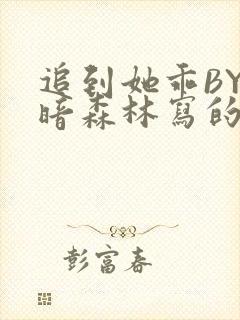 追到她乖BY
暗森林寫的
彭富春